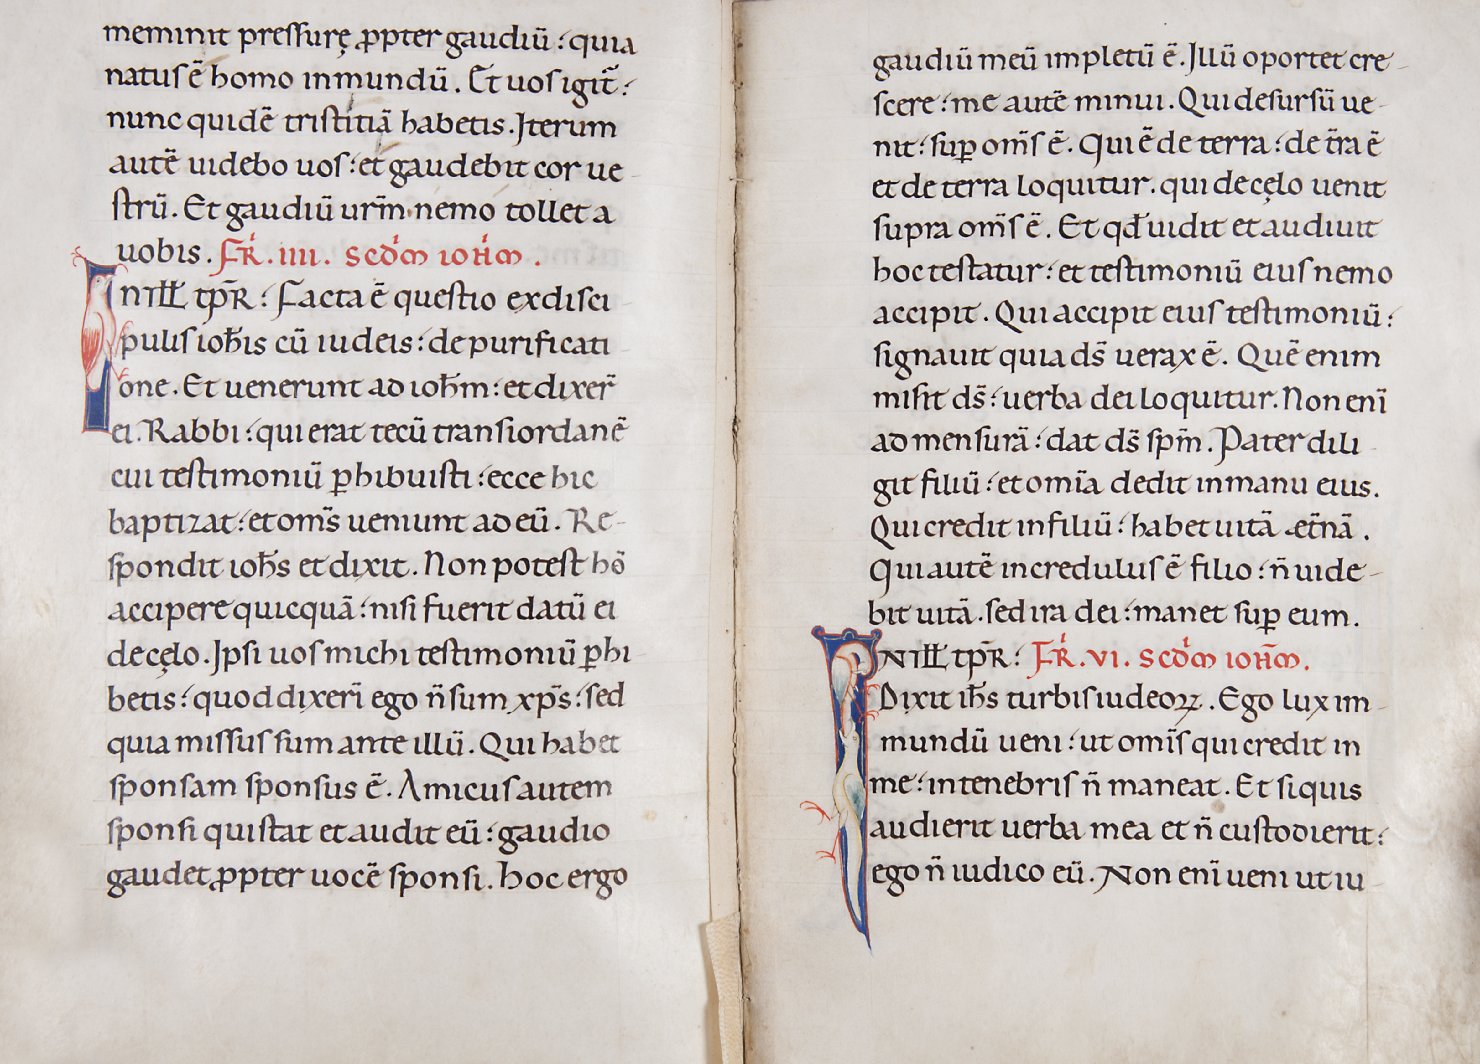 meminit pressurę ꝓpter gaudiū : quia
natus ē homo inmundū . Et uos igit̄ :
nunc quidē tristitiā habetis . Iterum
autē uidebo uos : et gaudebit cor ue-
strū . Et gaudiū ur̄m nemo tollet a
uobis . FR̄ . IIII . SCDM̄ IOH̄M .
INILL̄ TPR̄ : Facta ē questio exdisci
pulis ioh̄is cū iudeis : de purificati
one . Et uenerunt ad ioh̄m : et dixer̄
ei . Rabbi : qui erat tecū transiordanē
cui testimoniū ꝑhibuisti : ecce hic
baptizat : et om̄s ueniunt ad eū . Re-
spondit ioh̄s et dixit . Non potest hō
accipere quicquā : nisi fuerit datū ei
de cęlo . Ipsi uos michi testimoniū ꝑhi-
betis : quod dixerī ego n̄ sum xp̄s : sed
quia missus sum ante illū . Qui habet
sponsam sponsus ē . Amicus autem
sponsi qui stat et audit eū : gaudio
gaudet ꝓpter uocē sponsi . hoc ergo
gaudiū meū impletū ē . Illū oportet cre-
scere : me autē minui . Qui desursū ue-
nit : suꝑ om̄s ē . Qui ē de terra : de t̄ra ē
et de terra loquitur . qui de cęlo uenit
supra om̄s ē . Et qđ uidit et audiuit
hoc testatur : et testimoniū eius nemo
accipit . Qui accipit eius testimoniū :
signauit quia ds̄ uerax ē . Quē enim
misit ds̄ : uerba dei loquitur . Non enī
ad mensurā : dat ds̄ sp̄m . Pater dili
git filiū : et om̄ia dedit inmanu eius .
Qui credit infiliū : habet uitā ęt̄nā .
Qui autē incredulus ē filio : n̄ uide-
bit uitā . sed ira dei : manet suꝑ eum .
INILL̄ TPR̄ : FR̄ . VI . SCDM̄ IOH̄M .
Dixit ih̄s turbis iudeoꝝ . Ego lux im-
mundū ueni : ut om̄is qui credit in
me : intenebris n̄ maneat . Et siquis
audierit uerba mea et n̄ custodierit :
ego n̄ iudico eū . Non enī ueni ut iu-